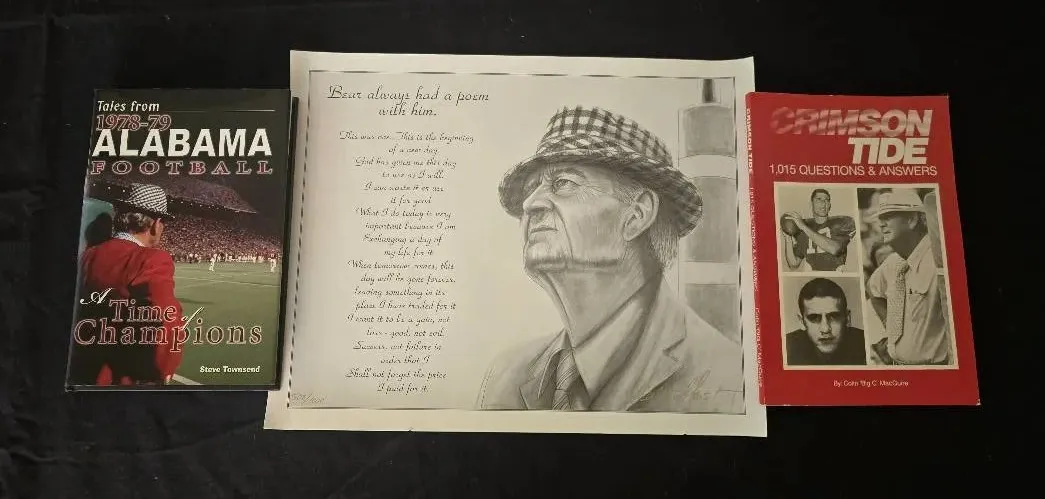 Tales from
1978-79
ALABAMA
FOOTBALL
A
Time of
Champions
Steve Townsend
Bear always had a poem
with him.
This is the beginning
of a new day
God has given me this day
to use as I will.
I can waste it or use
it for good
What I do today is very
important because I am
Exchanging a day of
my life for it
When tomorrow comes, this
day will be gone forever,
leaving something in its
place I have traded for it
I want it to be a gain, not
loss - good, not evil.
Success, not failure in
order that I
Shall not forget the price
I paid for it.
CRIMSON TIDE
CRIMSON
TIDE
1,015 QUESTIONS & ANSWERS
By: Colin "Big C" MacGuire